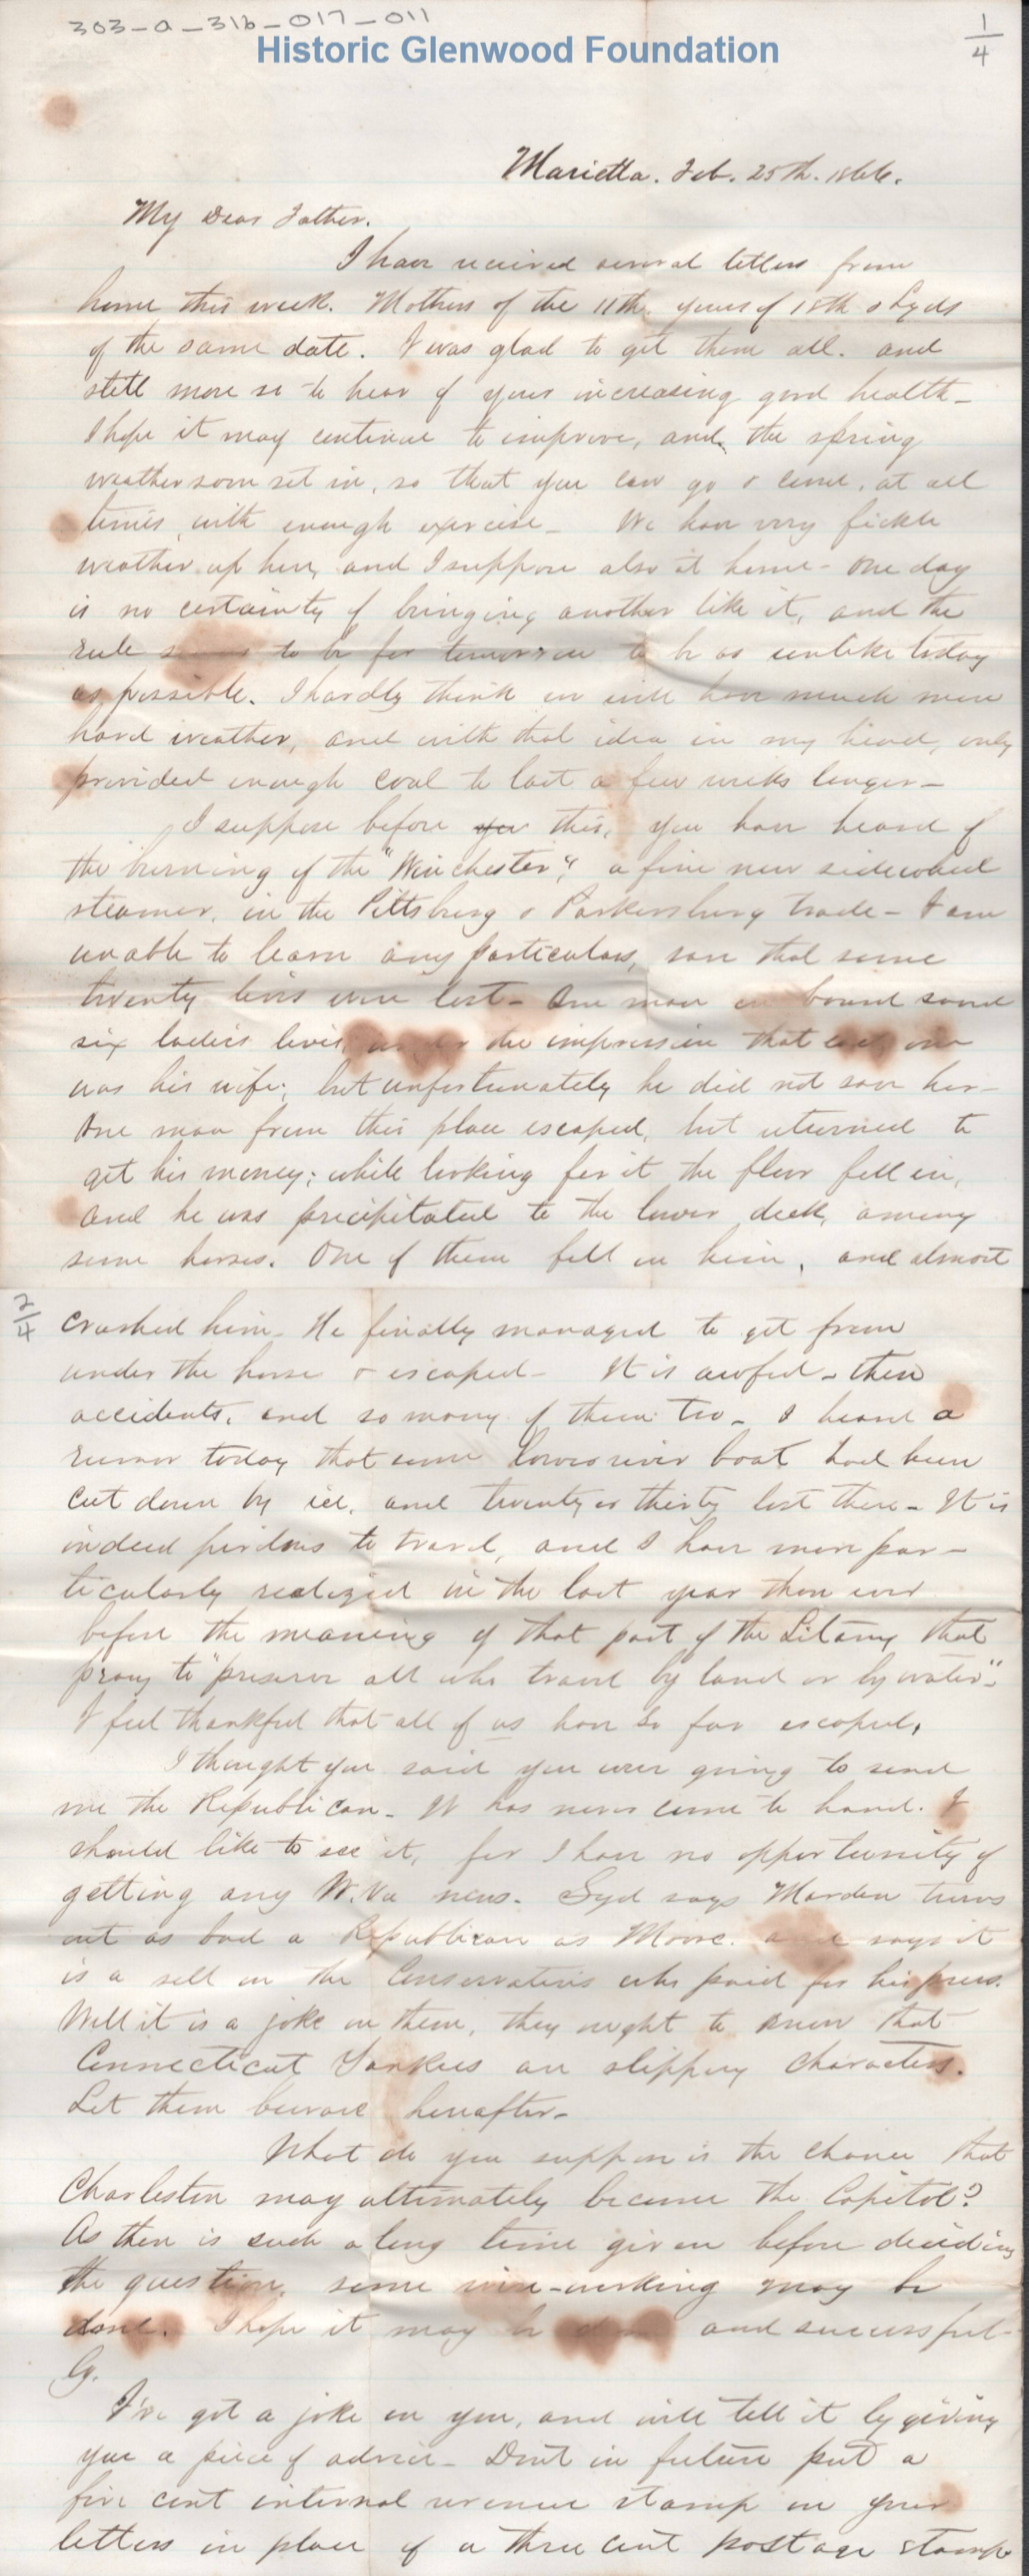 303-a-31b-017-011
1/4
Historic Glenwood Foundation
Marietta. Feb. 25th. 1866.
My Dear Father.
I have received several letters from
home this week. Mothers of the 11th. yours of 18th & Syds
of the same date. I was glad to get them all. and
still more so to hear of your increasing good health_
I hope it may continue to improve, and the spring
weather soon set in, so that you can go & come, at all
times, with enough exercise_ We have very fickle
weather up here, and I suppose also at home_ One day
is no certainty of bringing another like it, and the
rule seems to be for tomorrow to be as unlike today
as possible. I hardly think we will have much more
hard weather, and with that idea in my head, only
provided enough coal to last a few weeks longer_
I suppose before you this, you have heard of
the burning of the "Winchester", a fine new sidewheel
steamer, in the Pittsburg & Parkersburg trade_ I am
unable to learn any particulars, save that some
twenty lives were lost_ One man on board saved
six ladies lives, under the impression that each one
was his wife; but unfortunately he did not save her_
One man from this place escaped, but returned to
get his money; while looking for it the floor fell in,
and he was precipitated to the lower deck, among
some horses. One of them fell on him, and almost
2/4
crushed him_ He finally managed to get from
under the horse & escaped_ It is awful_ these
accidents, and so many of them too_ I heard a
rumor today that some lower river boat had been
cut down by ice, and twenty or thirty lost there_ It is
indeed perilous to travel, and I have more par-
ticularly realized in the last year than ever
before the meaning of that part of the Litany that
prays to "preserve all who travel by land or by water"_
I feel thankful that all of us have so far escaped.
I thought you said you were going to send
me the Republican_ It has never come to hand. I
should like to see it, for I have no opportunity of
getting any W.Va news. Syd says Marden turns
out as bad a Republican as Moore. and says it
is a sell on the Conservatives who paid for his press.
Well it is a joke on them, they ought to know that
Connecticut Yankees are slippery characters.
Let them beware hereafter_
What do you suppose is the chance that
Charleston may ultimately become the Capitol?
As there is such a long time given before deciding
the question, some wire-working may be
done. I hope it may be done and successful-
ly.
I've got a joke on you, and will tell it by giving
you a piece of advice_ Don't in future put a
five cent internal revenue stamp on your
letters in place of a three cent postage stamp